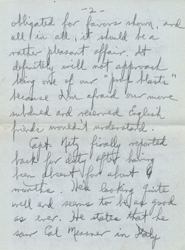 -2-
obligated for favors shown, and
all in all, it should be a
rather pleasant affair. It
definitely will not approach
being one of our "prop blasts"
because I'm afraid our more
subdued and reserved English
friends wouldn't understand.
Capt. Netz finally reported
back for duty after having
been absent for about 6
months. He's looking quite
well and seems to be as good
as ever. He states that he
saw Col. Messner in Italy